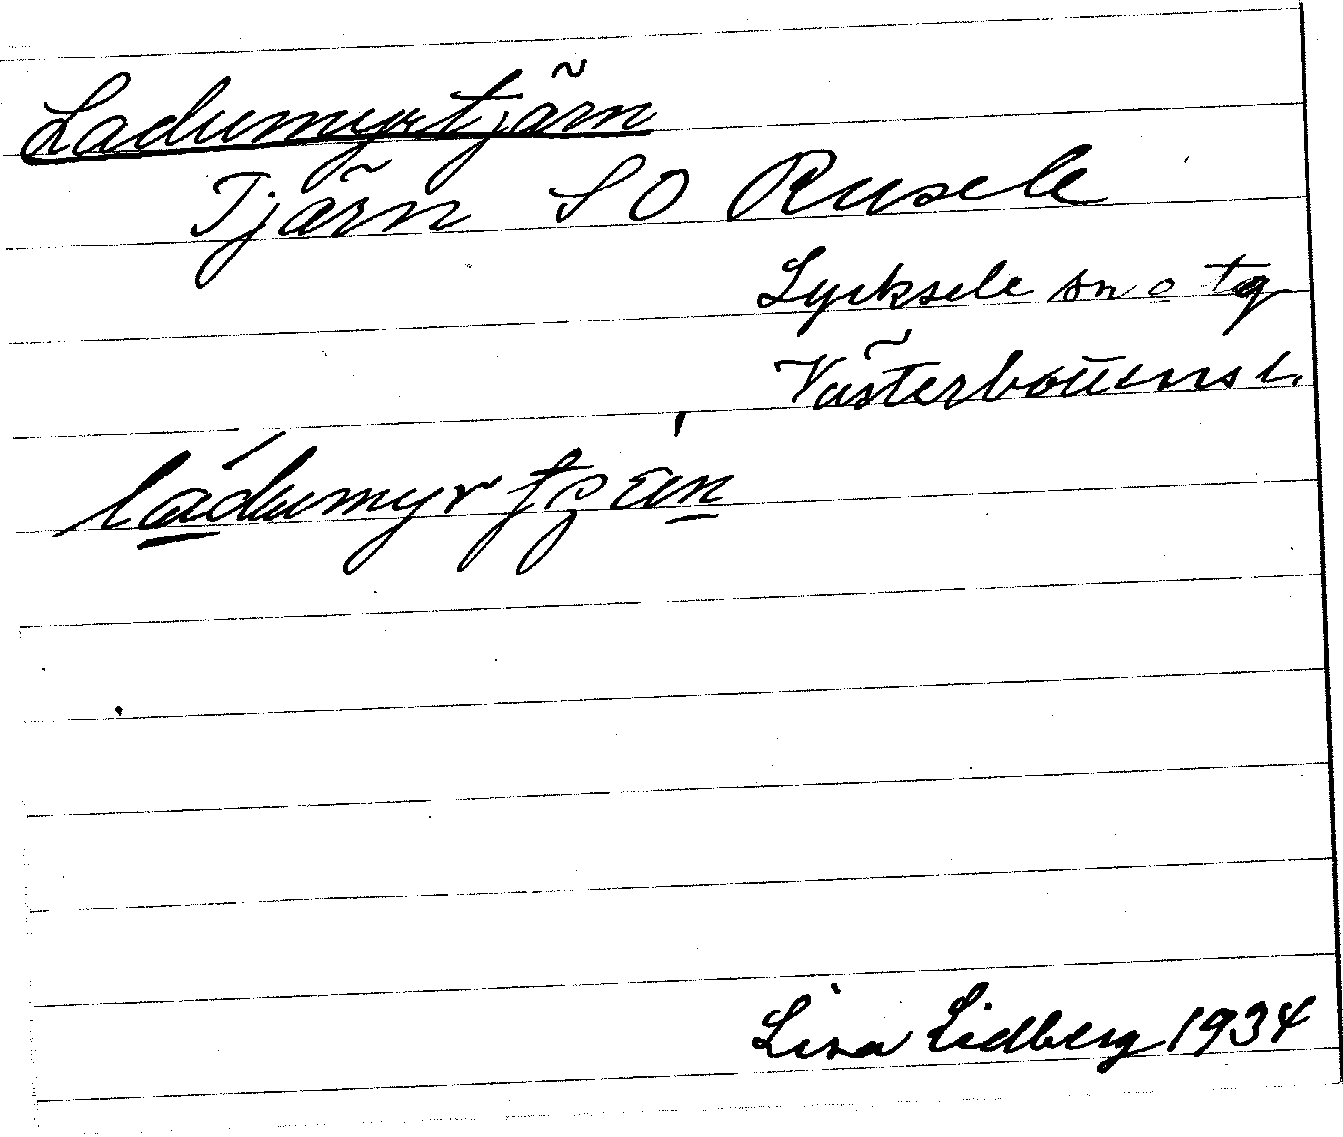 Ladumyrtjärn
Tjärn SO Rusele
Lycksele sn o tg
Västerbottens l.
ládumyr
Lisa Lidberg 1934